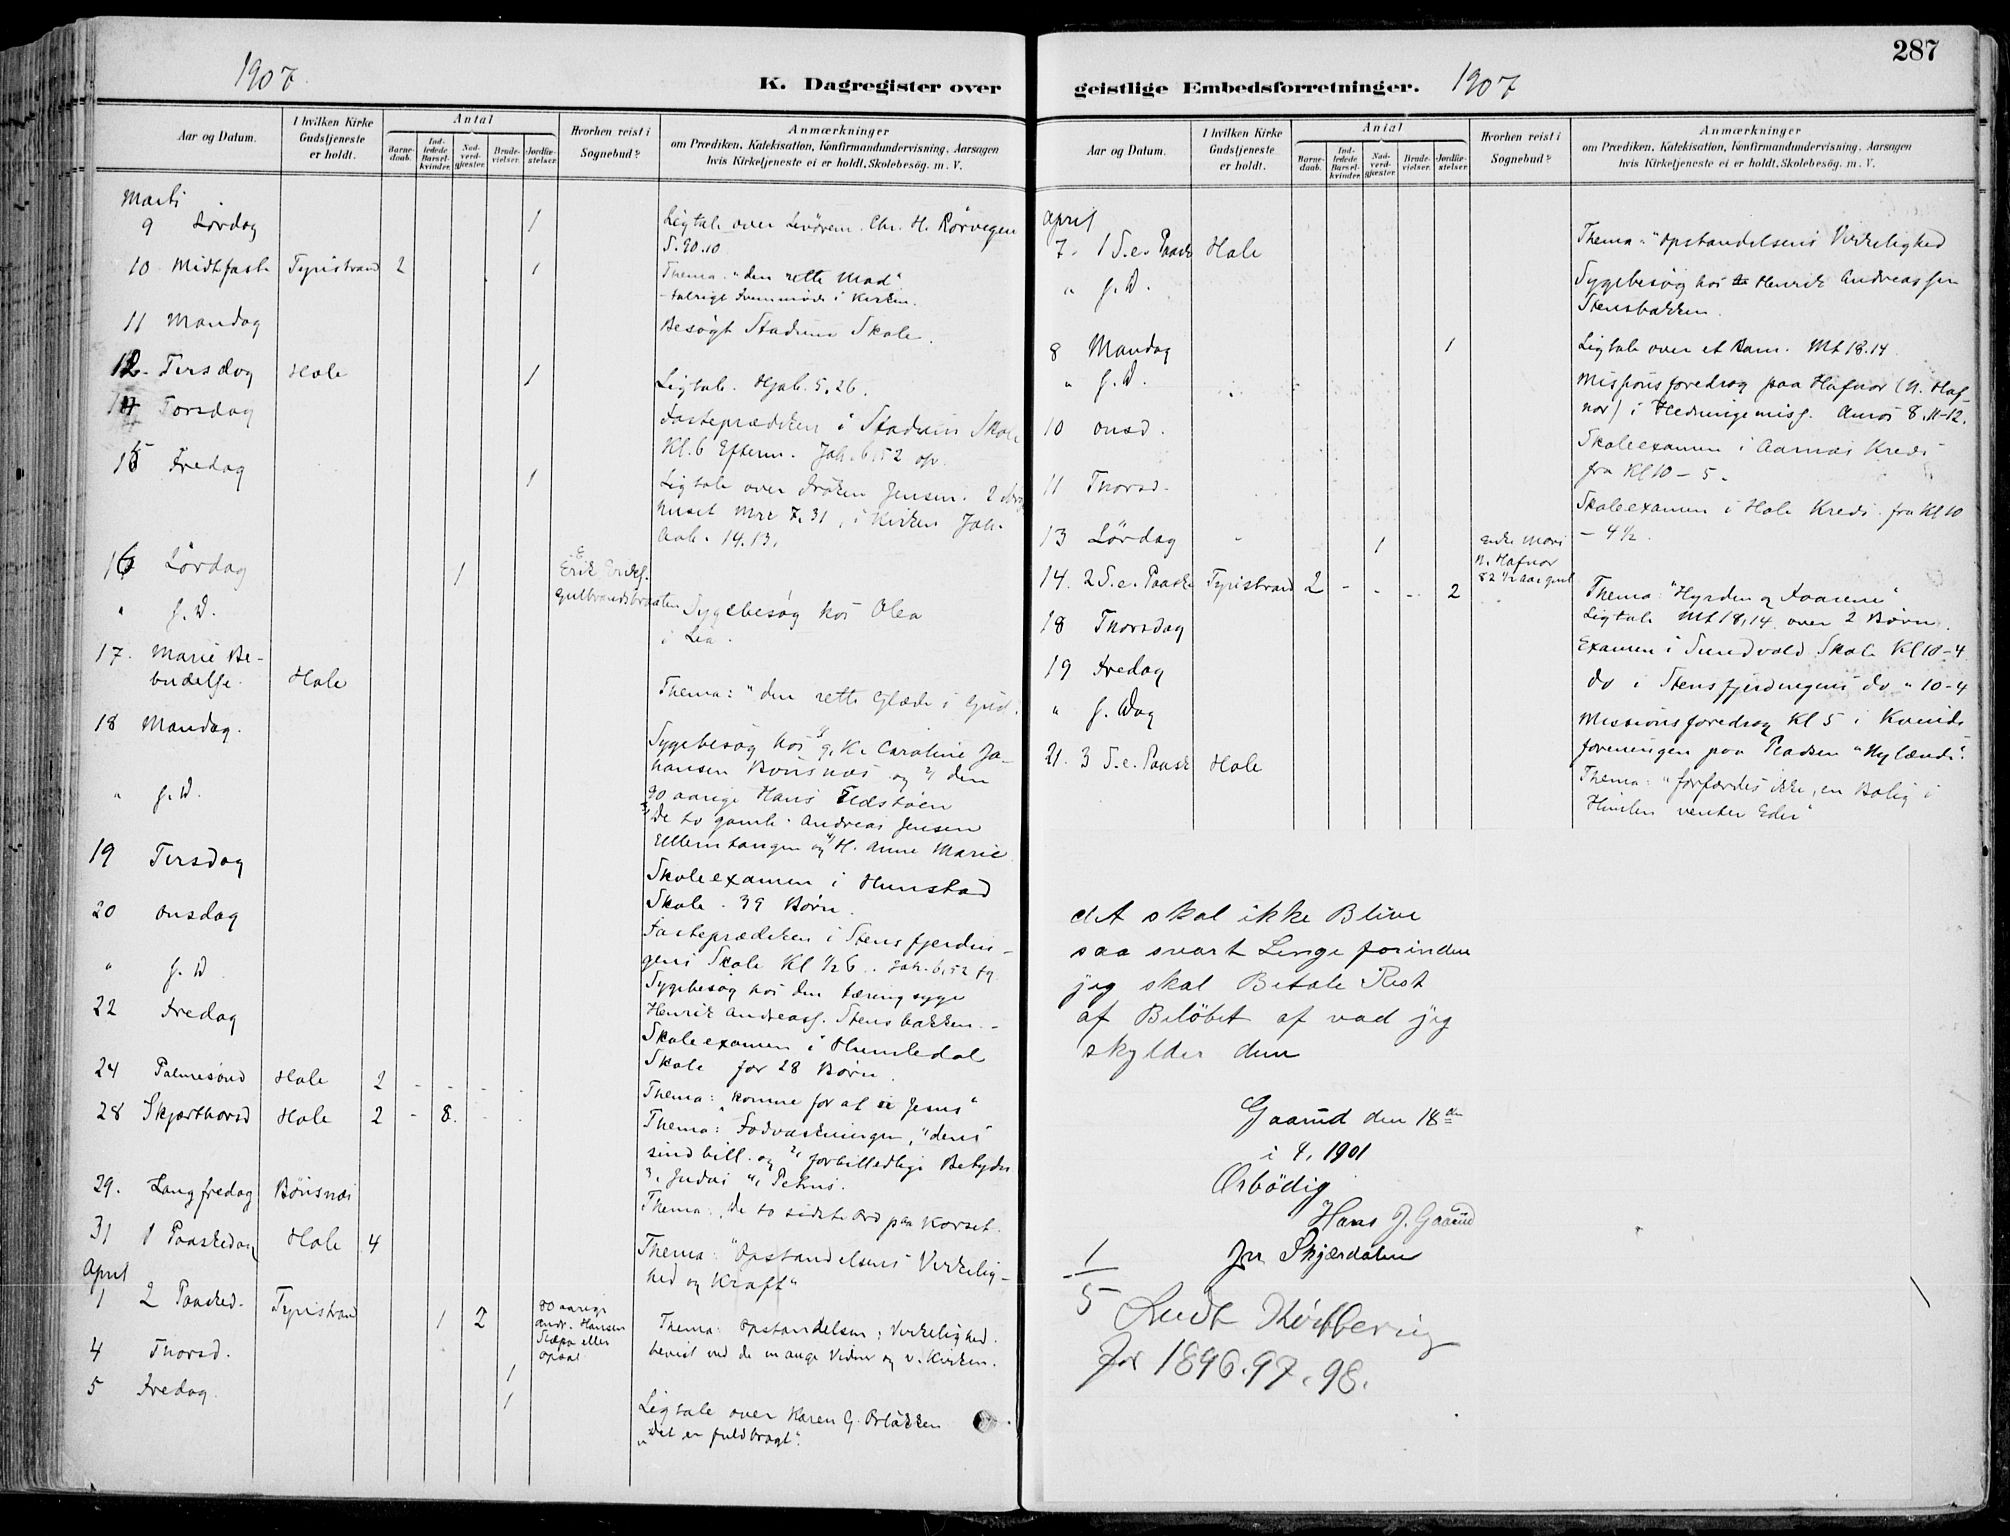 1907
K. Dagregister over
Aar og Datum.
I hvilken Kirke
Gudstjeneste
er holdt.
Antal
Barne-
daab.
Ind-
ledede
Barsel-
kvinder.
Nad-
verd-
gjæster.
Brude-
vielser.
Jordfæ-
stelser.
Hvorhen reist i
Sognebud?
Anmærkninger
om Prædiken, Katekisation, Konfirmandundervisning, Aarsagen
hvis Kirketjeneste ei er holdt, Skolebesøg. m. V.
Marts
9 Lørdag 1 Ligtale over Chr. H. Rørvegen
S. 90.10
10 Midtfaste Tyristrand 2 1 Thema: "den rette Mad"
i Kirken.
11 Mandag Besøgt Stadum Skole.
12. Tirsdag Hole 1 Ligtale. Hjob. 5,26.
14 Torsdag Fasteprædiken i Stadum Skole
Kl. 6 Efterm. Joh. 6,52
15 Fredag 1 Ligtale over Frøken Jensen. I
huset Mrk 7.31, i Kirken Joh.
Aab. 14.13.
16 Lørdag 1 Erik Eriks.
Gulbrandsbraaten
" s. D. Sygebesøg hos Olea
i Lia.
17. Marie Be-
budelse. Hole
Thema: "den rette Glæde i Gud.
18 Mandag. Sygebesøg hos G. K. Caroline Jo-
hansen Bønsnæs og 2) den
" s. D. 90 aarige Hans
3) De to gamle. Andreas Jensen
Ullerntangen og 4) H. Anne Marie
19 Tirsdag Skoleexamen i Hunstad
Skole. 39 Børn.
20 Onsdag Fasteprædiken i Stensfjerdin-
gens Skole Kl ½6. Joh. 6,52 fg.
" s. D Sygebesøg hos den tæringsyge
22 Fredag Henrik Andreass. Stensbakken.-
Skoleexamen i Humledal
Skole for 28 Børn.
24 Palmesønd Hole 2 - - - -
Thema: "komme for at se Jesus"
28 Skjærthorsd Hole 2 - 8. - -
Thema: Fodvaskningen, "dens
sindbill. og 2, forbilledlige Betydn
3, Judas 4, Petrus.
29. Langfredag Bønsnæs
Thema: "De to sidste Ord paa Korset.
31 1 Paaskedag Hole 4 Thema: "Opstandelsens Virkelig-
hed og Kraft"
April
1 2 Paasked. Tyristrand 1 2 90 aarige
Andr. Hansen
eller
Opsal
Thema: Opstandelsens Virkelighed.
bevist ved de mange Vidner og v. Kirken.
4 Thorsd. 1
5 Fredag. 1 Ligtale over Karen G.
"Det er fuldbragt".
287
geistlige Embedsforretninger. 1907
Aar og Datum.
I hvilken Kirke
Gudstjeneste
er holdt.
Antal
Barne-
daab.
Ind-
ledede
Barsel-
kvinder.
Nad-
verd-
gjæster.
Brude-
vielser.
Jordfæ-
stelser.
Hvorhen reist i
Sognebud?
Anmærkninger
om Prædiken, Katekisation, Konfirmandundervisning, Aarsagen
hvis Kirketjeneste ei er holdt, Skolebesøg. m. V.
April
7. 1 S. e. Paaske Hole Thema: "Opstandelsens Virkelighed
" s. D. Sygebesøg hos Henrik Andreassen
Stensbakken.
8 Mandag 1 Ligtale over et Barn. Mt 18.14
" s. D. Missionsforedrag paa Hafnor (N. Haf-
nor) i Hedningemiss. Amos 8,11-12.
10 Onsd. Skoleexamen i Aarnæs Kreds
fra Kl 10 - 5.
11 Thorsd. Skoleexamen i Hole Kreds fra Kl 10
- 4½.
13 Lørdag 1 Enke Mari
N. Hafnor
82 ½ aar gml
14. 2 S. e. Paaske Tyristrand 2 - - - 2 Thema: "Hyrden og Faarene"
Ligtale Mt 18,14 over 2 Børn.
18 Thorsdag Examen i Sundvold Skole Kl 10-4
19 Fredag do i Stensfjerdingens do " 10-4
" s. Dag Missionsforedrag Kl 5 i Kvinde
foreningen paa Pladsen "Nylænde".
21. 3 S. e. Paaske Hole
Thema: "forfærdes ikke, en Bolig i
Himlen venter Eder"
det skal ikke Blive
saa svart Lenge forinden
jeg skal Betale Rest
af Beløbet af vad jeg
skylder dem
Gaarud den 18de
i 4. 1901
Ærbødig
Hans J. Gaarud
pr Skjærdalen
1
5
for 1896.97.98.